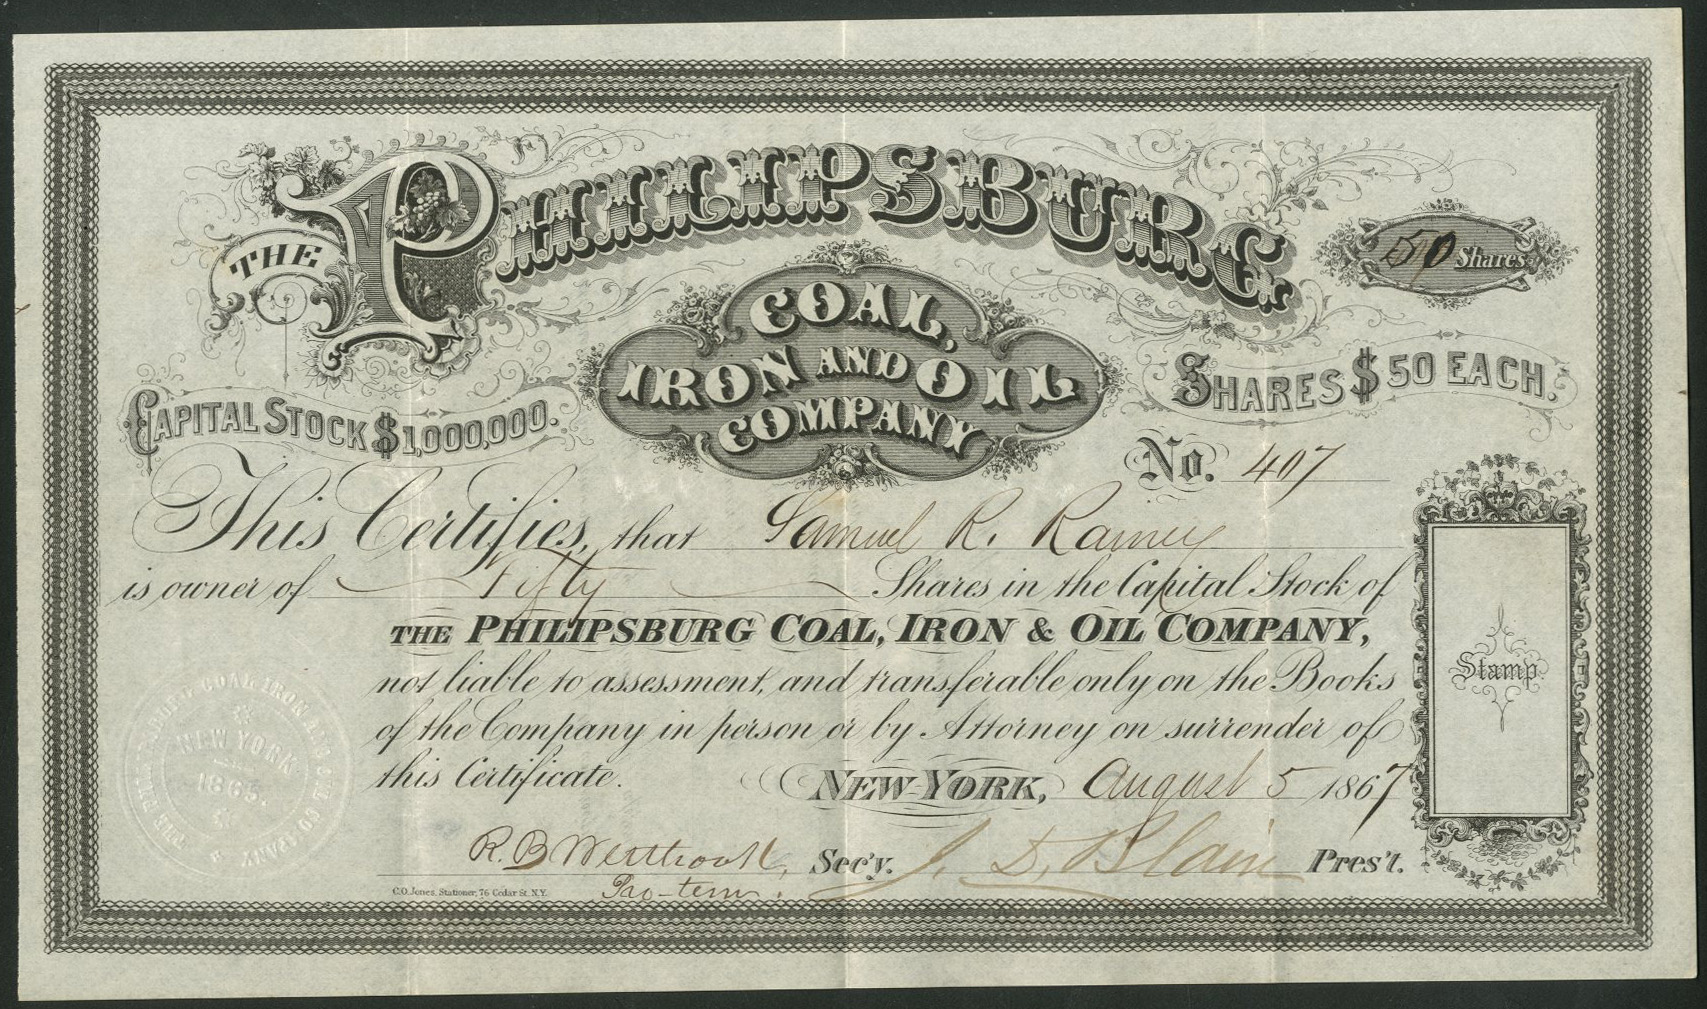 THE PHILIPSBURG
COAL,
IRON AND OIL
COMPANY
50 Shares
CAPITAL STOCK $1,000,000.
SHARES $50 EACH.
No. 407
This Certifies, that Samuel R. Ramey
is owner of Fifty Shares in the Capital Stock of
THE PHILIPSBURG COAL, IRON & OIL COMPANY,
not liable to assessment, and transferable only on the Books
of the Company in person or by Attorney on surrender of
this Certificate.
NEW-YORK, August 5 1867
R. B. Westbrook, Sec'y. J. D. Blain Pres't.
Pro-tem.
C.O. Jones, Stationer, 76 Cedar St. N.Y.
Stamp
THE PHILIPSBURG COAL IRON AND OIL COMPANY
NEW YORK
1865.